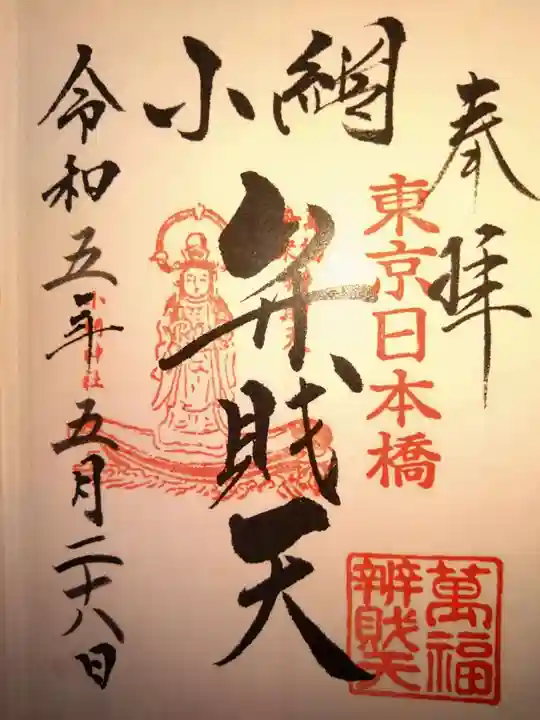 奉拝
東京日本橋
小網
弁賎天
令和五年五月二十八日
小網神社
萬福
辨賎天